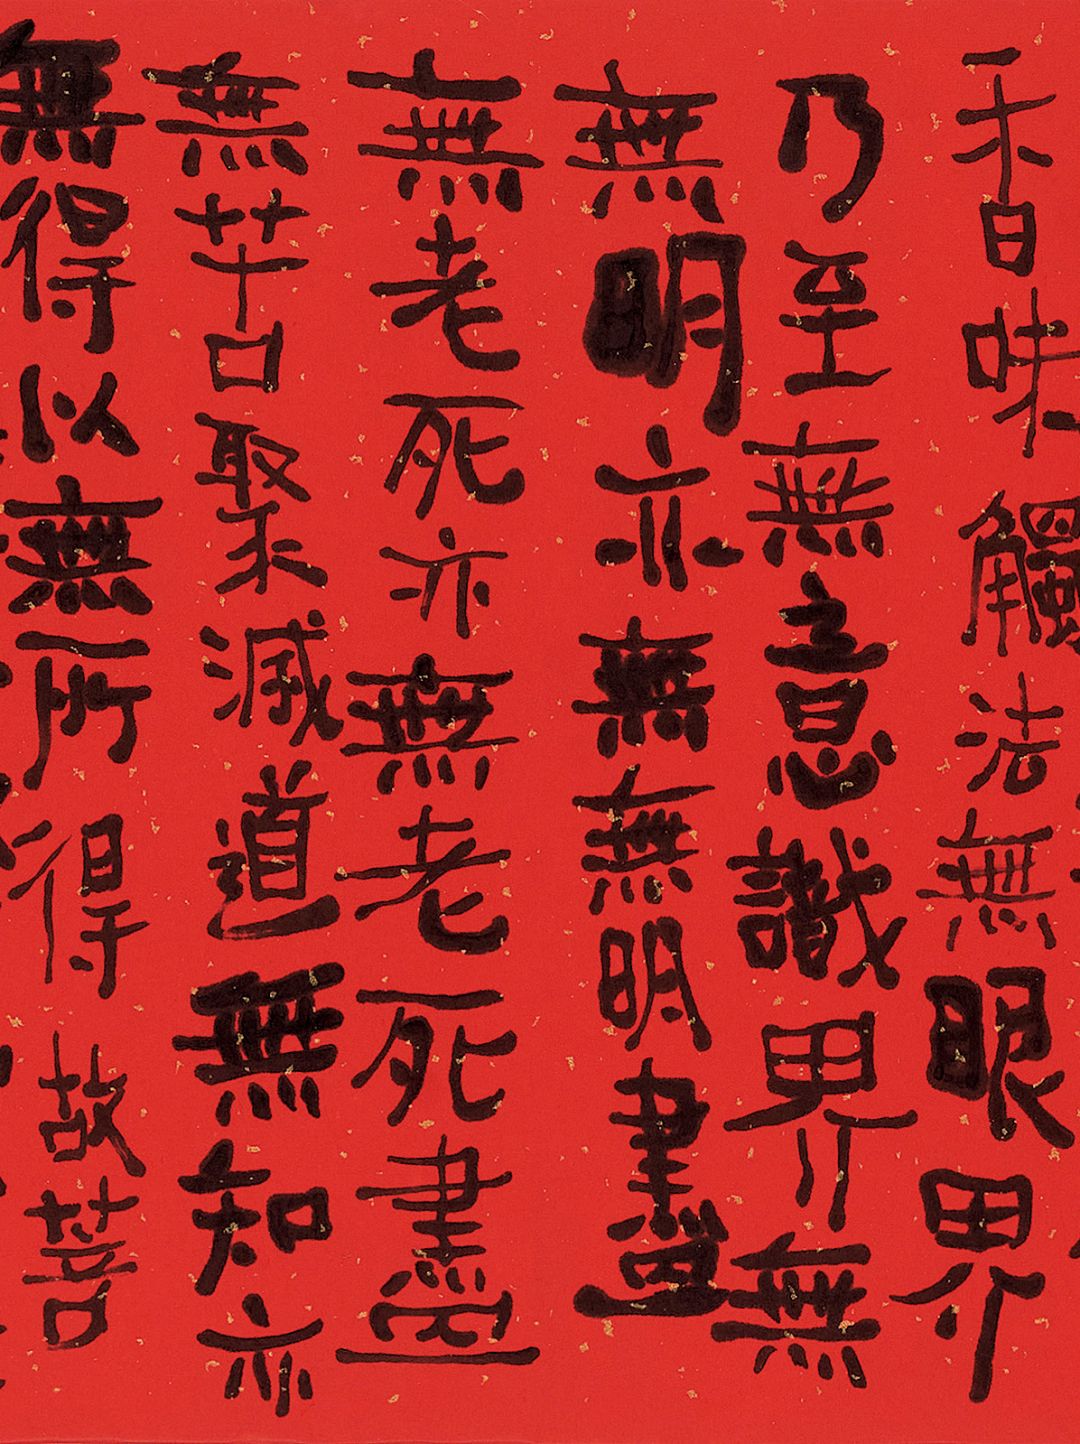 香味觸法無眼界
乃至無意識界無
無明亦無無明盡
無老死亦無老死盡
無苦聚滅道無知亦
無得以無所得故菩